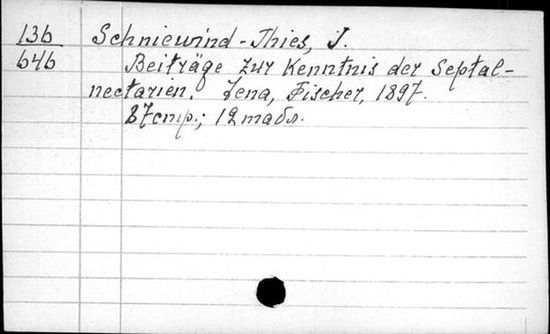 136 Schniewind-Thies, J.
646 Beiträge zur Kenntnis der Septal-
nectarien. Jena, Fischer, 1897.
87 cmp.; 12 табл.